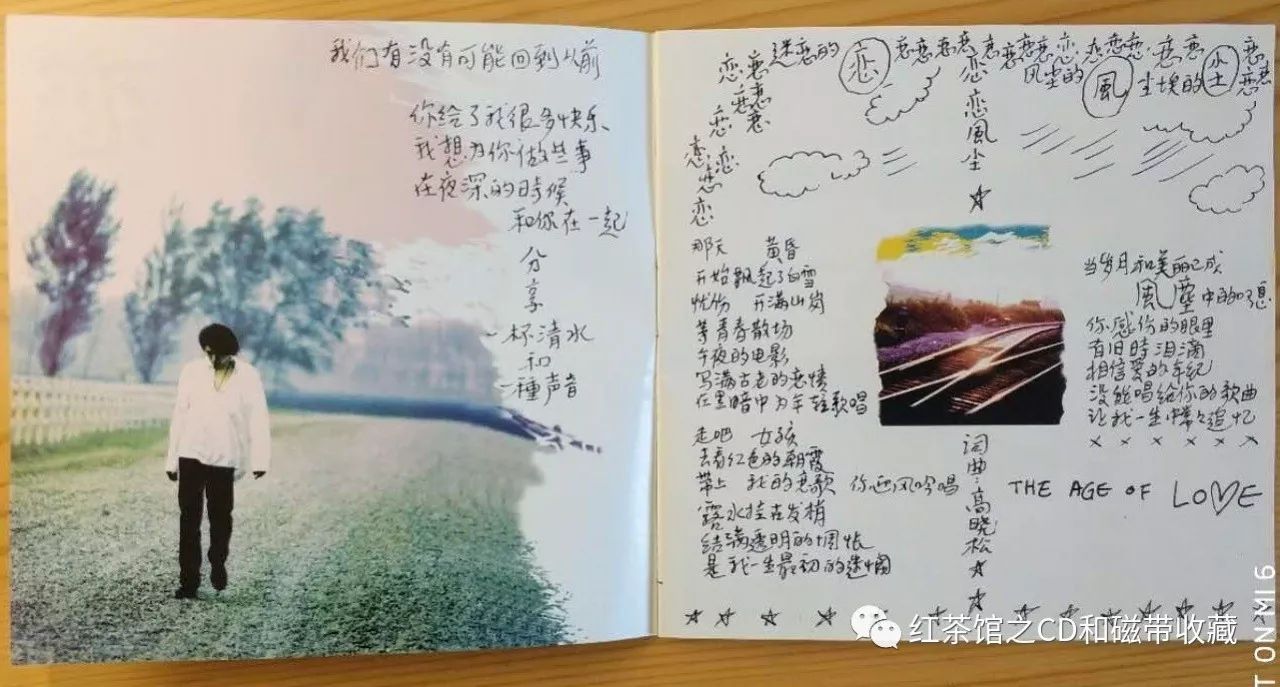 我们有没有可能回到从前
你给了我很多快乐
我想为你做些事
在夜深的時候
和你在一起
分享
一杯清水
和
一種声音
迷恋的 恋 恋恋恋恋恋恋恋恋恋 恋恋恋 恋恋 恋
恋恋
恋恋
恋恋
恋恋
恋
恋
风尘的 風 尘埃的 尘
恋恋風尘
那天 黄昏
开始飘起了白雪
忧伤 开满山岗
等青春散场
午夜的电影
写满古老的恋情
在黑暗中为年轻歌唱
走吧 女孩
去看红色的朝霞
带上 我的恋歌 你迎风吟唱
露水挂在发梢
结满透明的惆怅
是我一生最初的迷惘
当岁月和美丽已成
風塵中的叹息
你感伤的眼里
有旧時泪滴
相信爱的年纪
没能唱给你的歌曲
让我一生中常々追忆
词曲:高晓松
THE AGE OF LOVE
红茶馆之CD和磁带收藏
T ON MI 6